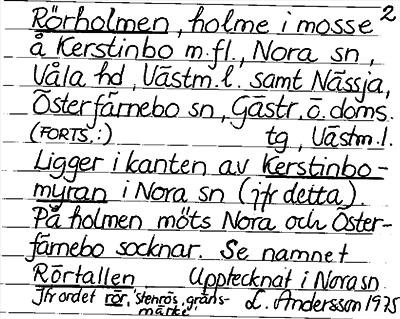 Rörholmen, holme i mosse 2
å Kerstinbo m.fl., Nora sn,
Våla hd, Västm.l. samt Nässja,
Österfärnebo sn, Gästr. ö. doms.
(FORTS.:) tg, Västm.l.
Ligger i kanten av Kerstinbo-
myran i Nora sn (jfr detta).
På holmen möts Nora och Öster-
färnebo socknar. Se namnet
Rörtallen Upptecknat i Nora sn
Jfr ordet rör, 'stenrös, gräns-
märke' L. Andersson 1975